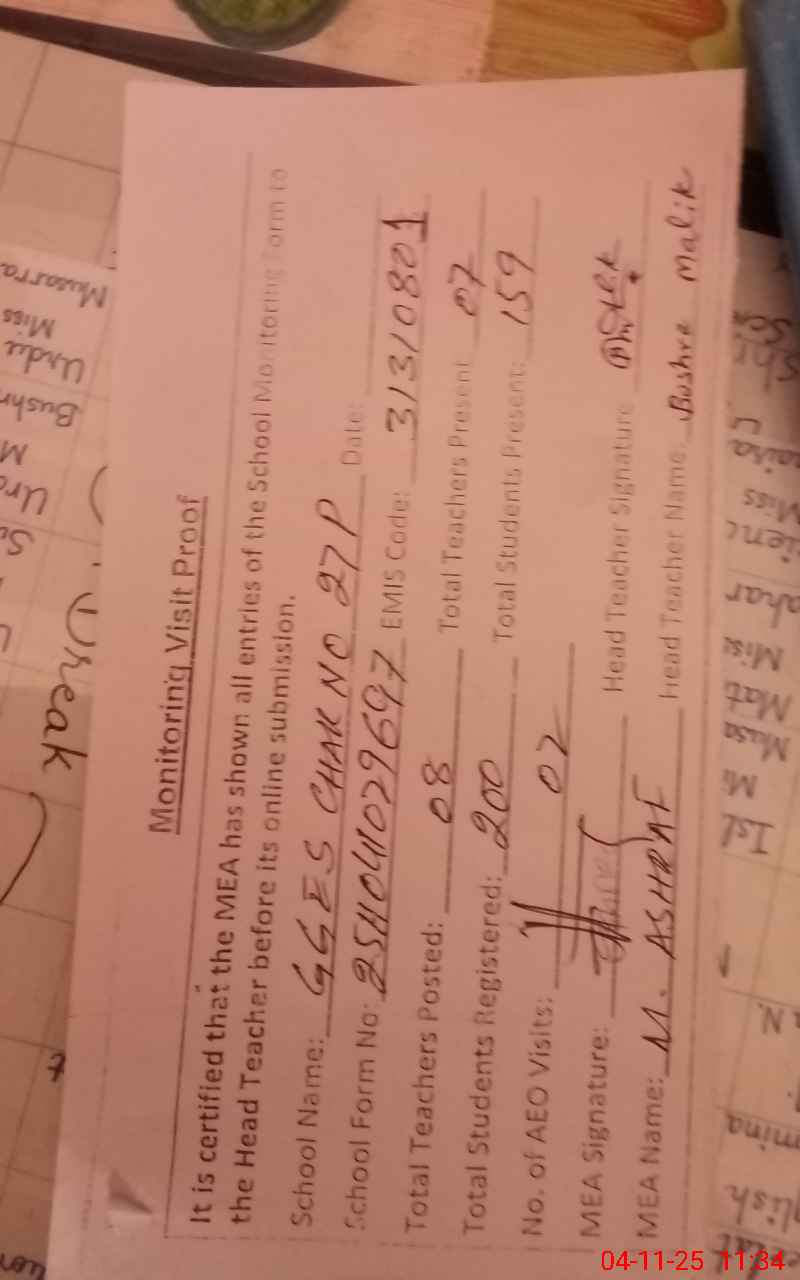 Monitoring Visit Proof
It is certified that the MEA has shown all entries of the School Monitoring Form to
the Head Teacher before its online submission.
School Name: GGES CHAK NO 27P Date:
School Form No: 25110411029697 EMIS Code: 31310801
Total Teachers Posted: 08 Total Teachers Present 07
Total Students Registered: 200 Total Students Present: 159
No. of AEO Visits: 02
MEA Signature: Head Teacher Signature
MEA Name: M. ASHRAF Head Teacher Name: Bushra Malik
Musarra
Miss
Urdu
Bushr
M
Break
Miss
Mat
Musa
Mi
Isl
N.
04-11-25 11:34